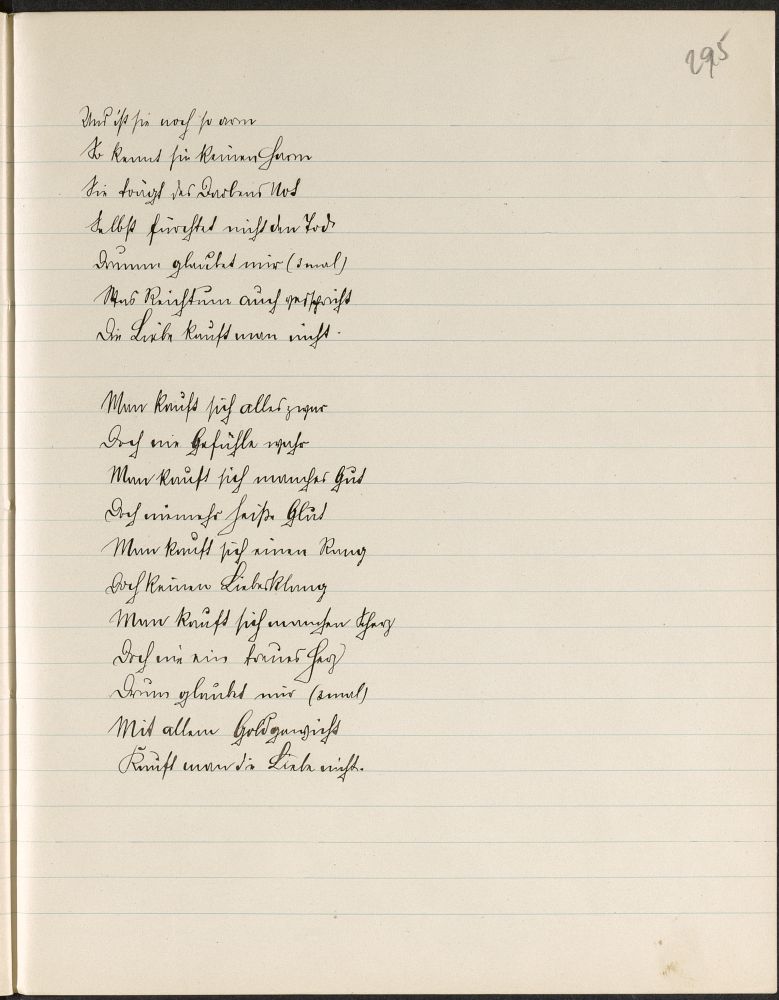 295
Und ist sie noch so arm
So kennt sie keinen Harm
Sie trägt des Darbens Not
Selbst fürchtet nicht den Tod
Drumm glaubet mir (3mal)
Was Reichtum auch verspricht
Die Liebe kauft man nicht.
Man kauft sich alles zwar
Doch nie Gefühle wahr
Man kauft sich manches Gut
Doch niemehr heiße Glut
Man kauft sich einen Rang
Doch keinen Liebesklang
Man kauft sich manchen Scherz
Doch nie ein treues Herz
Drum glaubet mir (3mal)
Mit allem Goldgewicht
Kauft man die Liebe nicht.